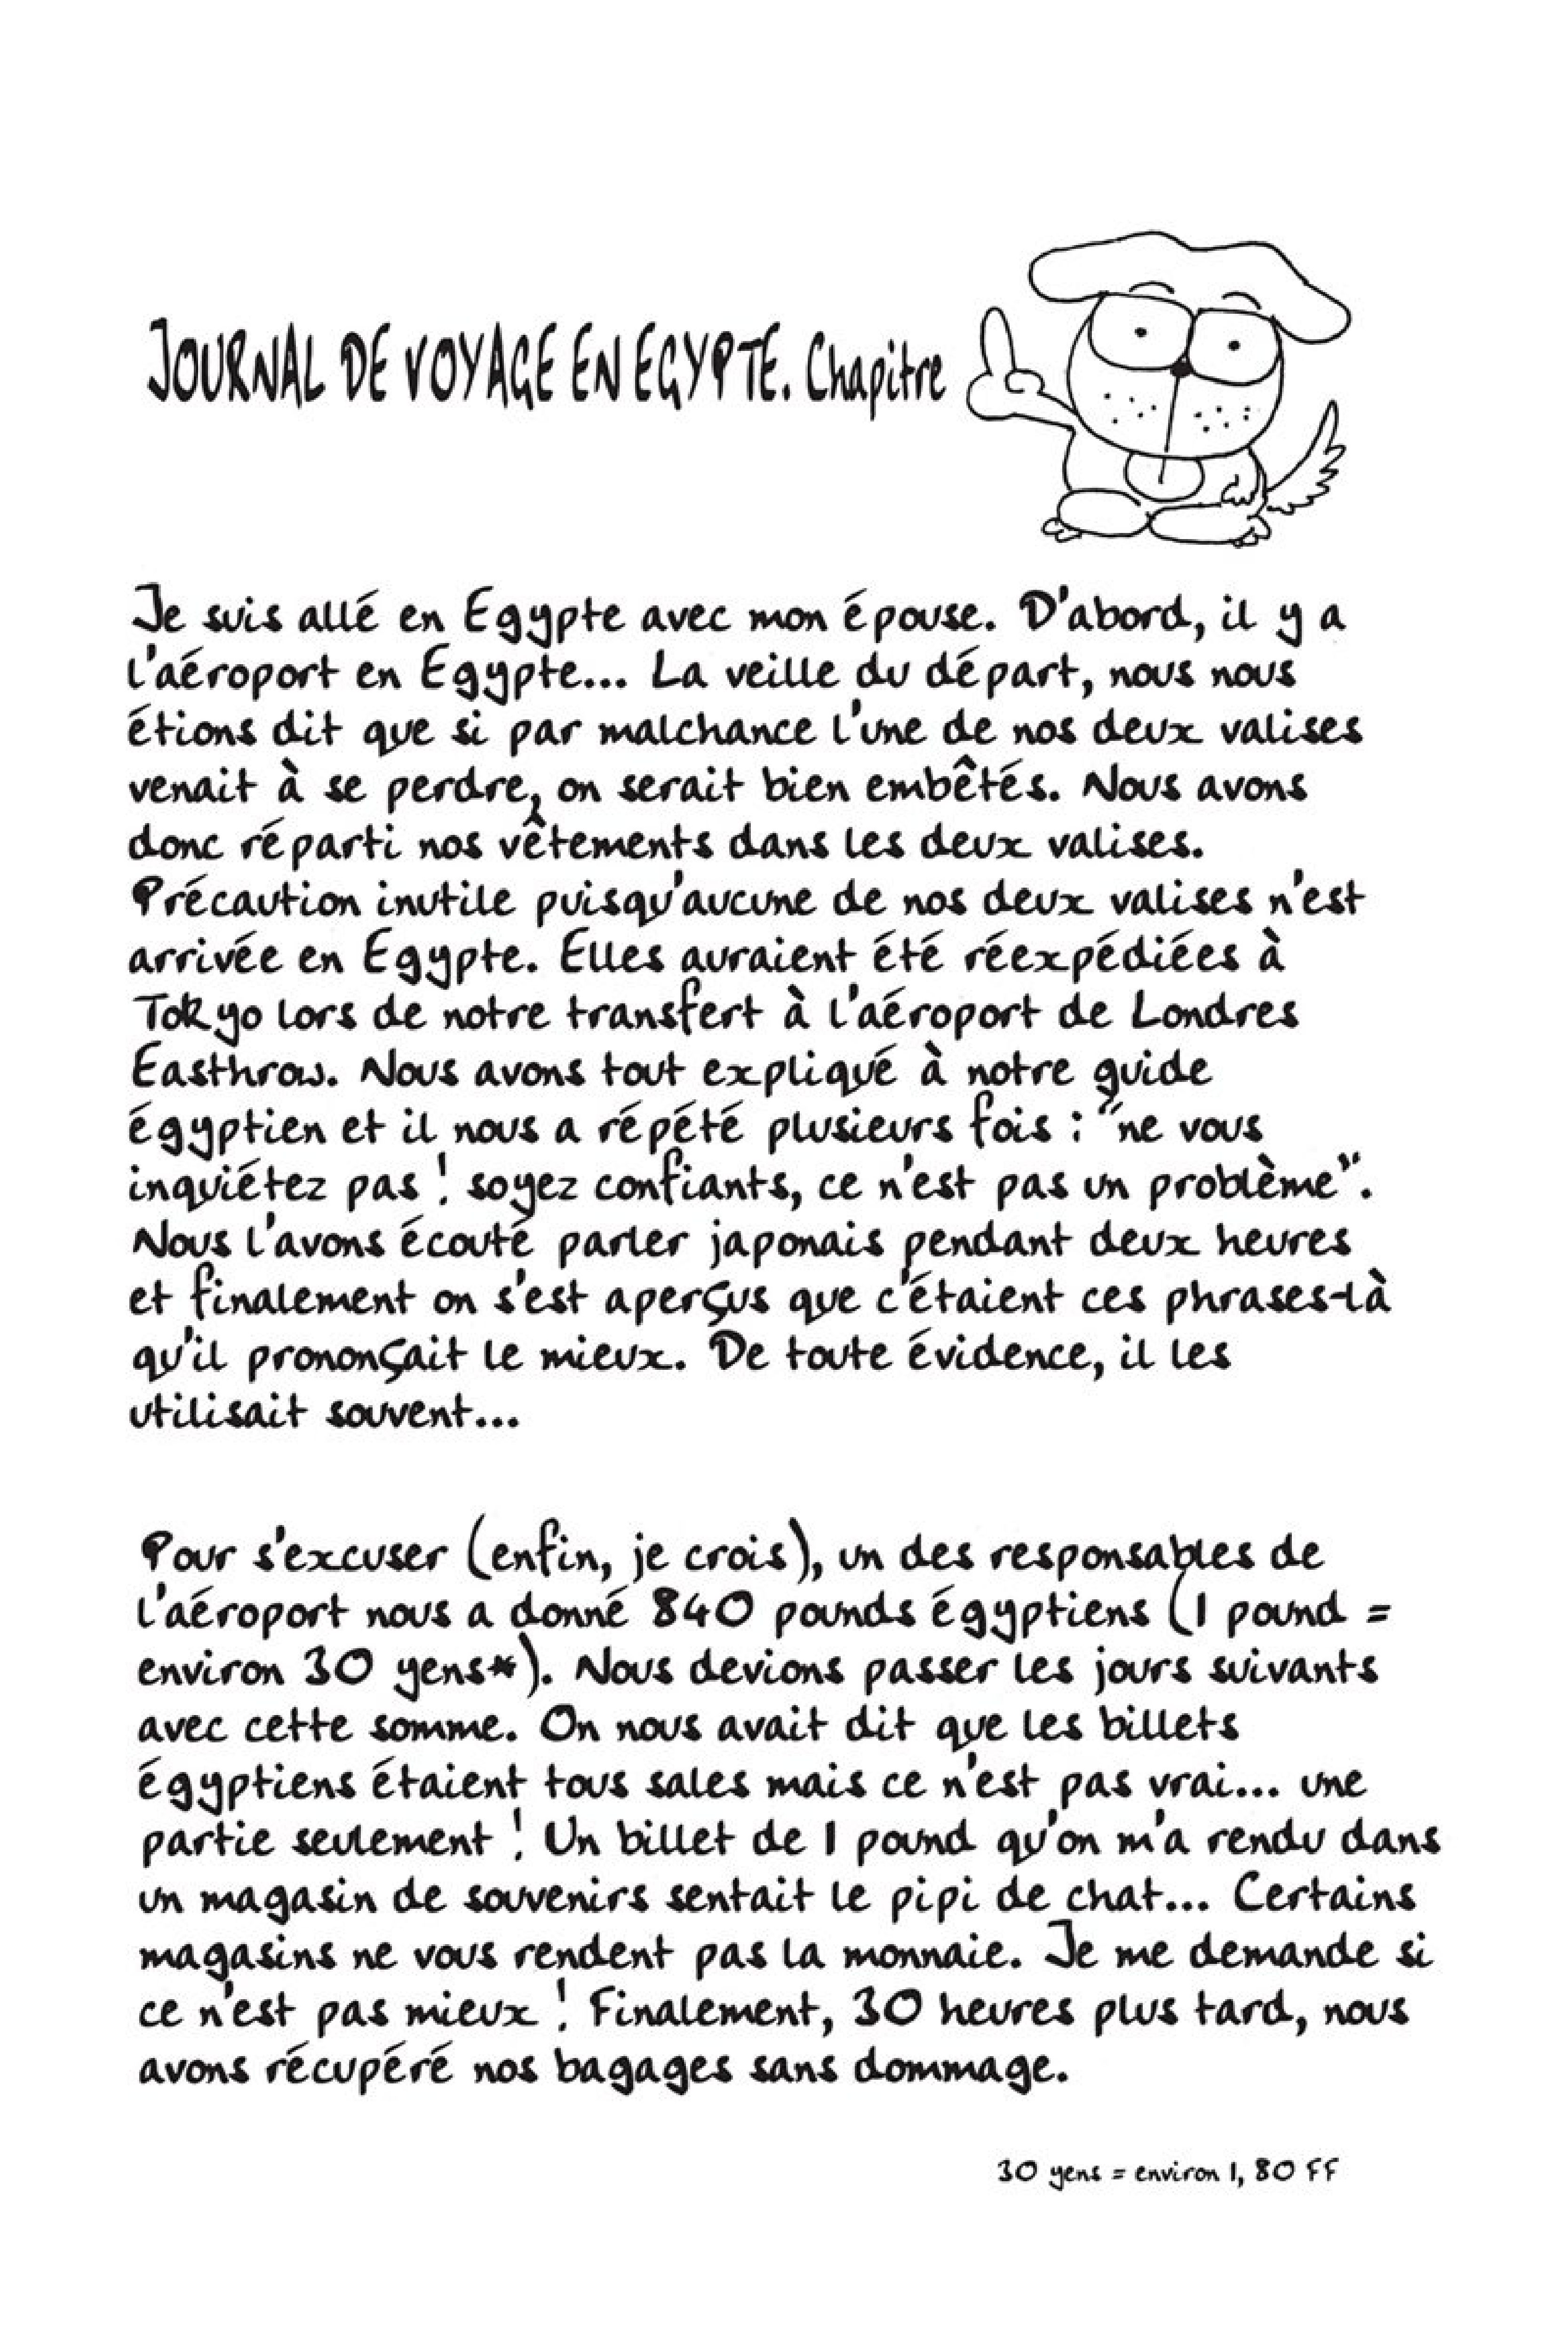 JOURNAL DE VOYAGE EN EGYPTE. Chapitre
Je suis allé en Egypte avec mon épouse. D'abord, il y a
l'aéroport en Egypte... La veille du départ, nous nous
étions dit que si par malchance l'une de nos deux valises
venait à se perdre, on serait bien embêtés. Nous avons
donc réparti nos vêtements dans les deux valises.
Précaution inutile puisqu'aucune de nos deux valises n'est
arrivée en Egypte. Elles auraient été réexpédiées à
Tokyo lors de notre transfert à l'aéroport de Londres
Easthrow. Nous avons tout expliqué à notre guide
égyptien et il nous a répété plusieurs fois : "ne vous
inquiétez pas ! soyez confiants, ce n'est pas un problème".
Nous l'avons écouté parler japonais pendant deux heures
et finalement on s'est aperçus que c'étaient ces phrases-là
qu'il prononçait le mieux. De toute évidence, il les
utilisait souvent...
Pour s'excuser (enfin, je crois), un des responsables de
l'aéroport nous a donné 840 pounds égyptiens (1 pound =
environ 30 yens*). Nous devions passer les jours suivants
avec cette somme. On nous avait dit que les billets
égyptiens étaient tous sales mais ce n'est pas vrai... une
partie seulement ! Un billet de 1 pound qu'on m'a rendu dans
un magasin de souvenirs sentait le pipi de chat... Certains
magasins ne vous rendent pas la monnaie. Je me demande si
ce n'est pas mieux ! Finalement, 30 heures plus tard, nous
avons récupéré nos bagages sans dommage.
30 yens = environ 1, 80 FF